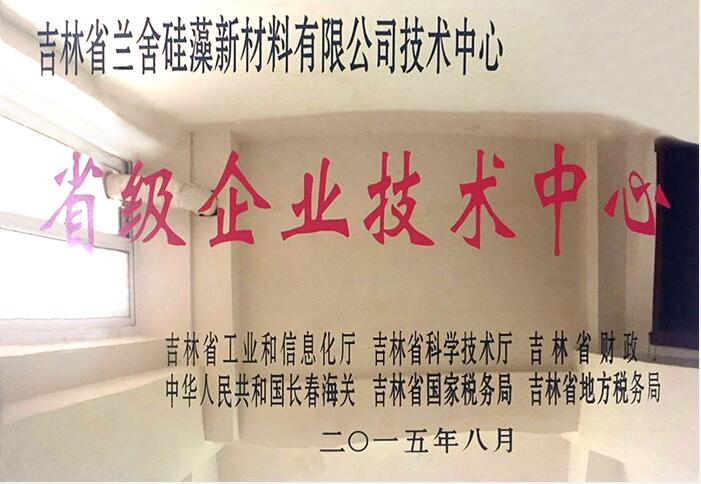 吉林省兰舍硅藻新材料有限公司技术中心
省级企业技术中心
吉林省工业和信息化厅 吉林省科学技术厅 吉林省财政
中华人民共和国长春海关 吉林省国家税务局 吉林省地方税务局
二〇一五年八月